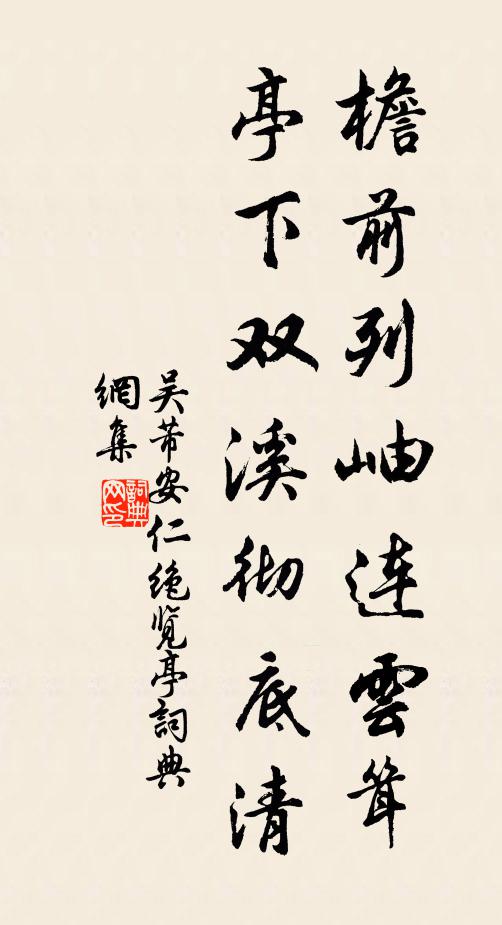 檐前列岫連雲耸
亭下双溪彻底清
吴芾安仁绝览亭詞典
網集
詞典網印